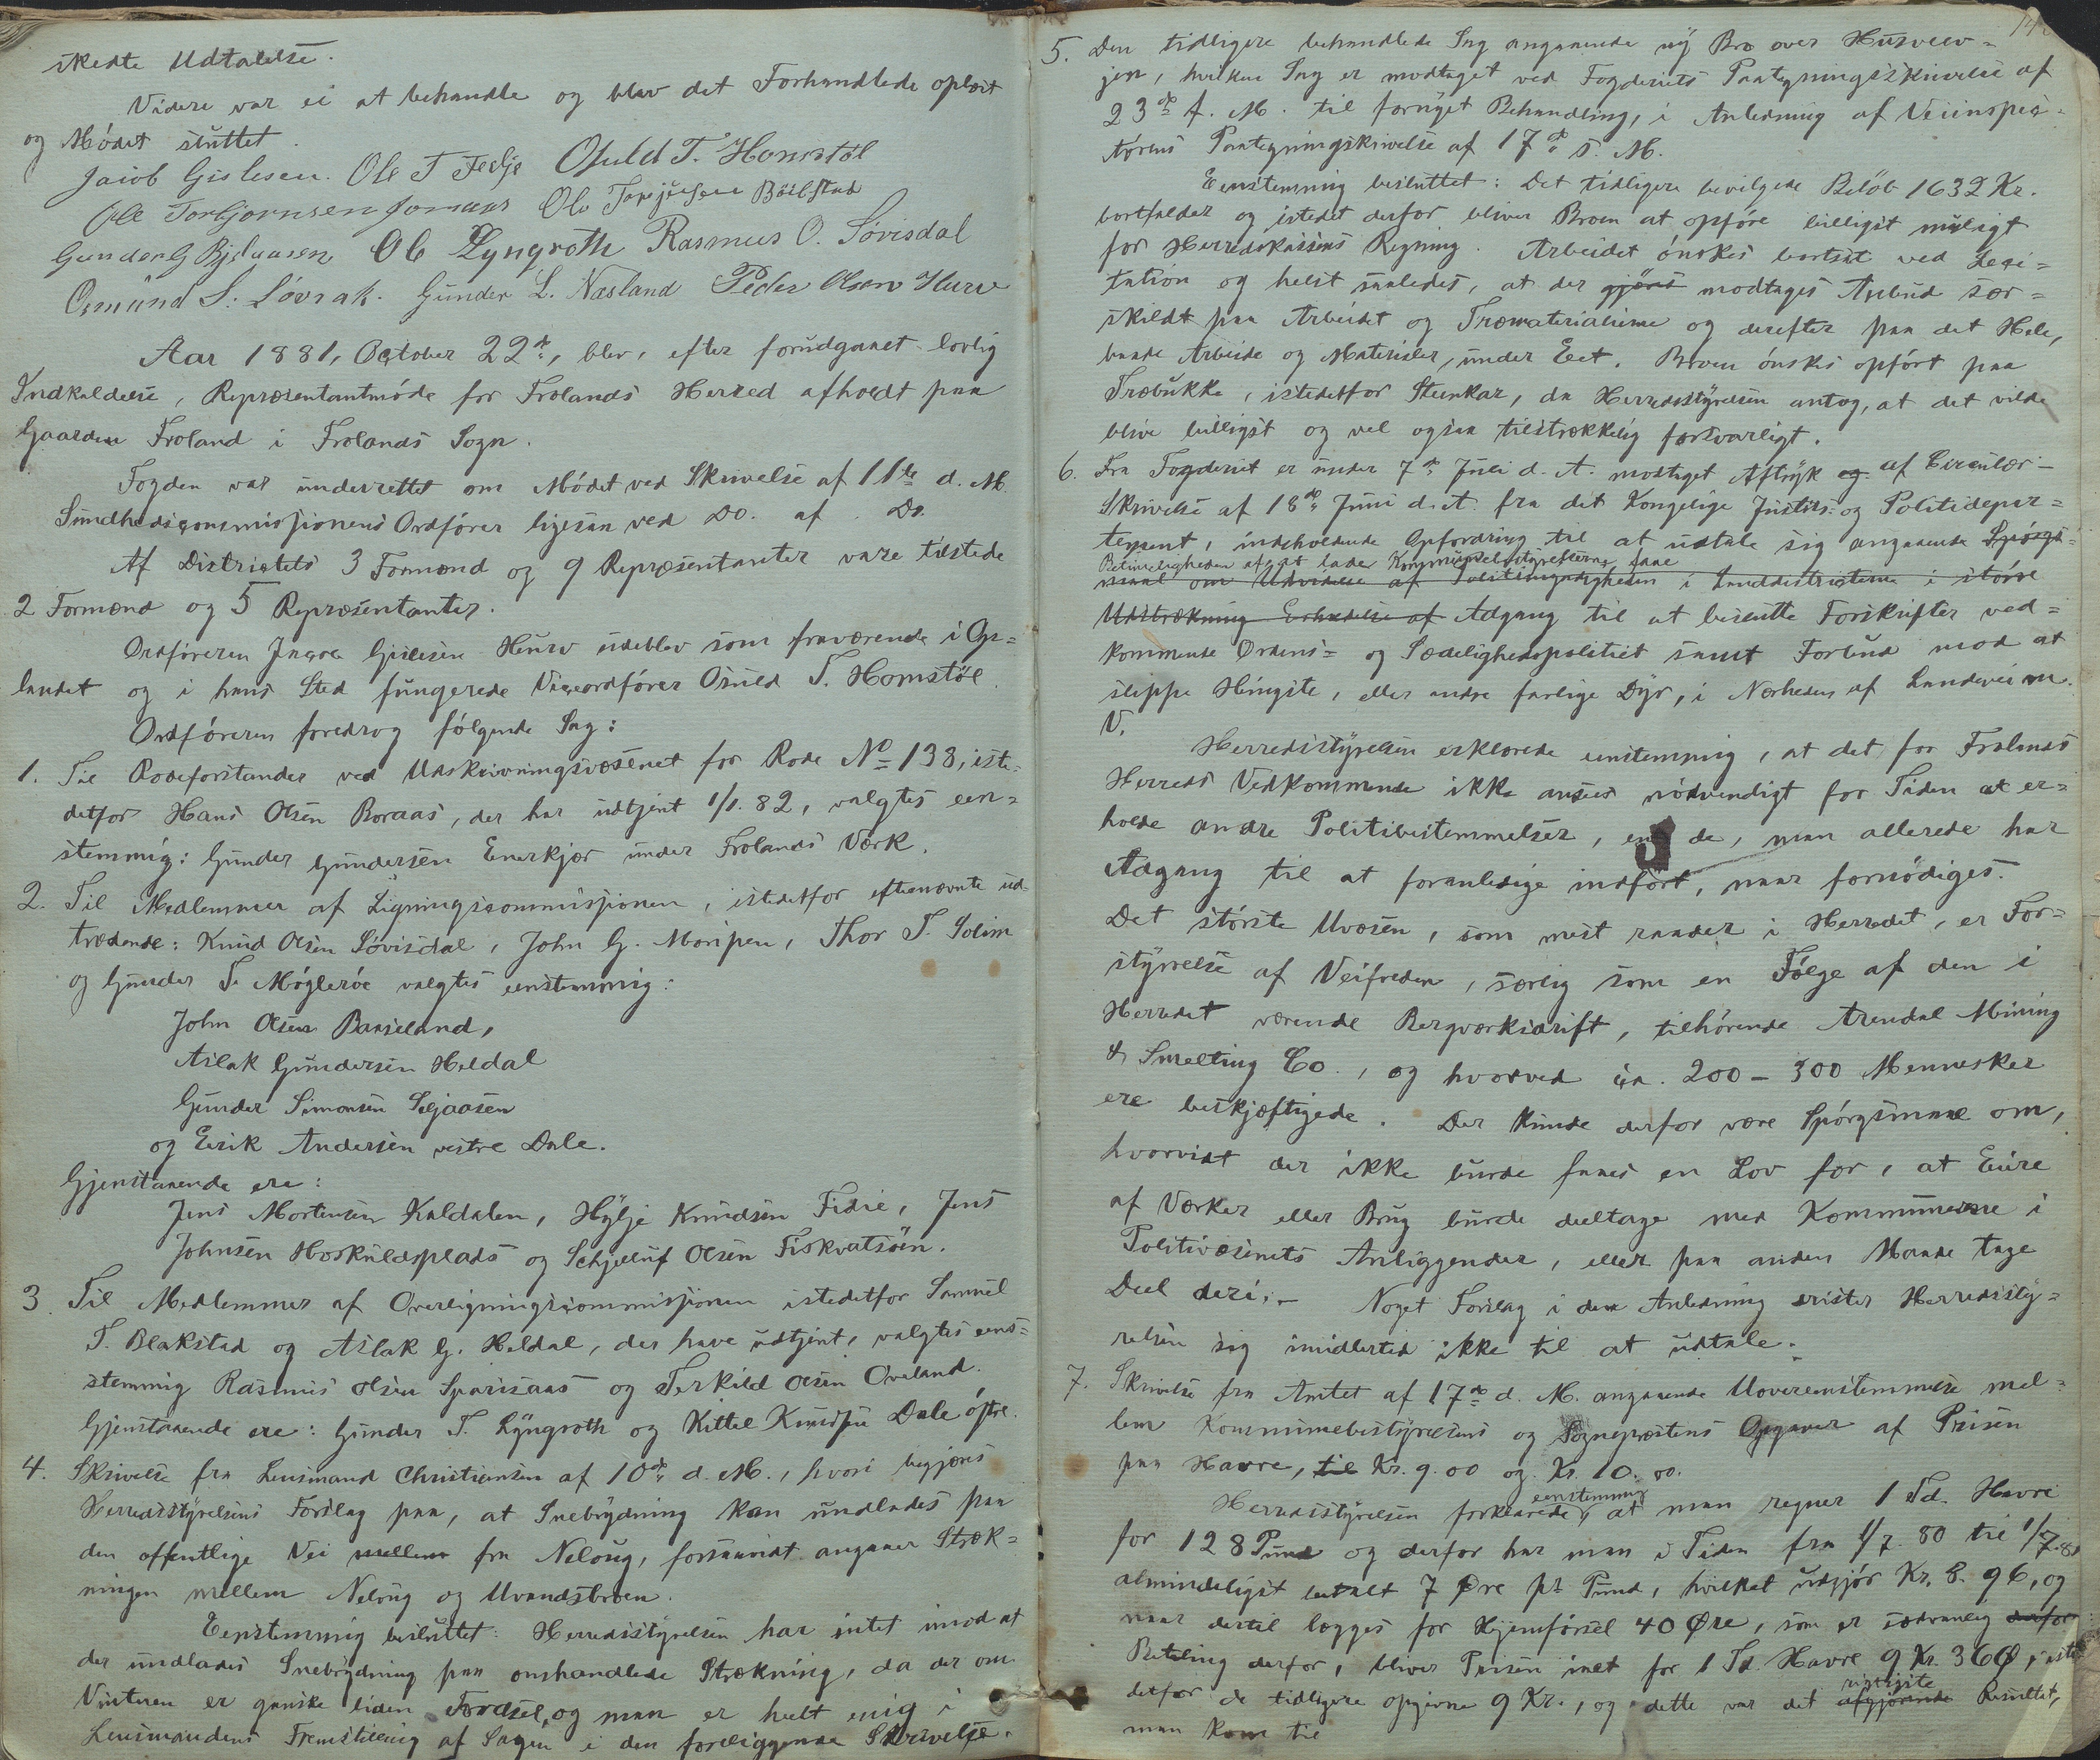 skedte Udtalelse.
Videre var ei at behandle og blev det Forhandlede oplæst
og Mödet sluttet.
Jacob Gislesen. Ole T Fedje Osuld T. Homstöl
Ole Torbjornsen Jomaas Ole Terjesen Böilestad
Gunder G Bjelaasen Ole Lyngroth Rasmus O. Lövisdal
Osmund S. Lövrak. Gunder L. Næsland Peder Olsen Hurv
Aar 1881, October 22de, blev, efter forudgaaet lovlig
Indkaldelse, Repræsentantmöde for Frolands Herred afholdt paa
Gaarden Froland i Frolands Sogn.
Fogden var underrettet om Mödet ved Skrivelse af 11te d. M.
Sundhedscommissionens Ordförer ligesaa ved Do. af Do.
Af Districtets 3 Formænd og 9 Repræsentanter vare tilstede
2 Formænd og 5 Repræsentanter.
Ordföreren Jacob Gislesen Hurv udeblev som fraværende i Op-
landet og i hans Sted fungerede Viceordförer Osuld T. Homstöl.
Ordföreren foredrog fölgende Sag:
1. Til Rodeforstander ved Udskrivningsvæsenet for Rode No 138, iste-
detfor Hans Olsen Boraas, der har udtjent 1/1. 82, valgtes een-
stemmig: Gunder Gundersen Enerkjær under Frolands Værk.
2. Til Medlemmer af Ligningscommissionen, istedetfor eftenævnte ud-
trædende: Knud Olsen Lövisdal, John G. Moripen, Thor T. Solim
og Gunder T. Mögleröe valgtes eenstemmig:
John Olsen Baaseland,
Aslak Gundersen Heldal
Gunder Simonsen Seljaasen
og Eerik Andersen vestre Dale.
Gjenstaaende ere:
Jens Mortensen Kaldalen, Hylje Knudsen Fidie, Jens
Johnsen Hoskuldsplads og Schjelluf Olsen Fiskvatsöen.
3. Til Medlemmer af Overligningscommissionen istedetfor Samuel
T. Blakstad og Aslak G. Heldal, der have udtjent, valgtes eens-
stemmig Rasmus Olsen Sparsaas og Terkild Olsen Oveland.
Gjenstaaende ere: Gunder T. Lyngroth og Kittel Knudsen Dale östre.
4. Skrivelse fra Lensmand Christiansen af 10de d. M., hvori begjæres
Herredsstyrelsens Forslag paa, at Snebrydning kan undlades paa
den offentlige Vei mellem fra Neloug, forsaavidt angaaer Stræk-
ningen mellem Neloug og Uvandsbroen.
Eenstemmig besluttet: Herredsstyrelsen har intet imod at
der undlades Snebrydning paa omhandlede Strækning, da der om
Vinteren er ganske liden Færdsel, og man er heelt enig i
Lensmandens Fremstilling af Sagen i den foreliggende Skrivelse.
5. Den tidligere behandlede Sag angaaende ny Bro over Husvev-
jen, hvilken Sag er modtaget ved Fogderiets Paategningsskrivelse af
23de f. M. til fornyet Behandling, i Anledning af Veiinspec-
törens Paategningskrivelse af 17de s. M.
Eenstemmig besluttet: Det tidligere bevilgede Belöb 1632 Kr.
bortfalder og istedet derfor bliver Broen at opföre billigst muligt
for Herredskassens Regning. Arbeidet önskes bortsat ved Leci-
tation og helst saaledes, at der gjöres modtages Anbud sær-
skildt paa Arbeidet og Træmaterialierne og derefter paa det Hele,
baade Arbeide og Materialer, under Eet. Broen önskes opfört paa
Træbukke, istedetfor Steenkar, da Herredsstyrelsen antog, at det vilde
blive billigst og vel ogsaa tilstrækkelig forsvarligt.
6. Fra Fogderiet er under 7de Juli d. A. modtaget Aftryk og af Circulær-
Skrivelse af 18de Juni d. A. fra det Kongelige Justits- og Politidepar-
tement, indeholdende Opfordring til at udtale sig angaaende Spörgs-
Betimeligheden af at lader Kommunebestyrelserne faae
maal om Udvidelse af Politimyndigheden i Landdistricterne i större
Udstrækning Erholdelse af Adgang til at besætte Forskrifter ved-
kommende Ordens- og Sædelighedspolitiet samt Forbud mod at
slippe Hingste, eller andre farlige Dyr, i Nærheden af Landeveien.
V.
Herredsstyrelsen erklærede eenstemmig, at det for Frolands
Herreds Vedkommende ikke ansees nödvendigt for Tiden at er-
holde andre Politibestemmelser, end de, man allerede har
Adgang til at foranledige indfört, naar fornödiges.
Det störste Uvæsen, som mest raader i Herredet, er For-
styrrelse af Veifreden, særlig som en Fölge af den i
Herredet værende Bergværksdrift, tilhörende Arendal Mining
& Smelting Co., og hvorved ca. 200 - 300 Mennesker
ere beskjæftigede. Der kunde derfor være Spörgsmaal om,
hvorvidt der ikke burde faaes en Lov for, at Eiere
af Værker eller Brug burde deeltage med Kommunerne i
Politivæsenets Anliggender, eller paa anden Maade tage
Deel deri. - Noget Forslag i den Anledning drister Herredssty-
relsen sig imidlertid ikke til at udtale.
7. Skrivelse fra Amtet af 17de d. M. angaaende Uovereensstemmelse mel-
lem Kommunebestyrelsens og Sognepræstens Opgaver af Prisen
paa Havre, til Kr. 9.00 og Kr. 10.00.
eenstemmig
Herredsstyrelsen forklarede, at man regner 1 Td. Havre
for 128 Pund og derfor har man i Tiden fra 1/7. 80 til 1/7. 81
almindeligst betalt 7 Øre pr Pund, hvilket udgjör Kr. 8. 96, og
naar dertil lægges for Hjemförsel 40 Øre, som er sædvanlig derfor
Betaling derfor, bliver Prisen inet for 1 Td. Havre 9 Kr. 36 Ø, iste-
rigtigste
detfor de tidligere opgivne 9 Kr., og dette var det afgjörende Resultat,
man kom til